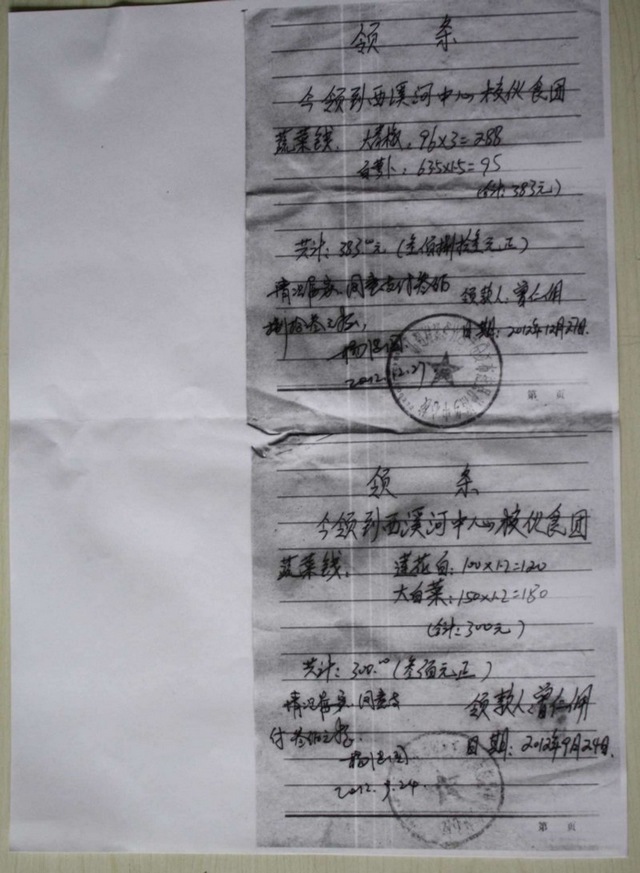 领 条
今领到西溪河中心校伙食团
蔬菜钱: 96×3=288
白萝卜: 63.5×1.5=95
(合计:383元)
共计: 383.00元 (叁佰捌拾叁元正)
情况属实,同意支付叁佰
捌拾叁元整,
领款人:曾仁佣
日期: 2012年12月27日.
2012.12.27
第 页
领 条
今领到西溪河中心校伙食团
蔬菜钱: 莲花白: 100×1.2=120
大白菜: 150×1.2=180
(合计: 300元)
共计: 300.00 (叁佰元正)
情况属实 同意支
付叁佰元整.
领款人:曾仁佣
日期: 2012年9月24日.
2012.9.24
第 页